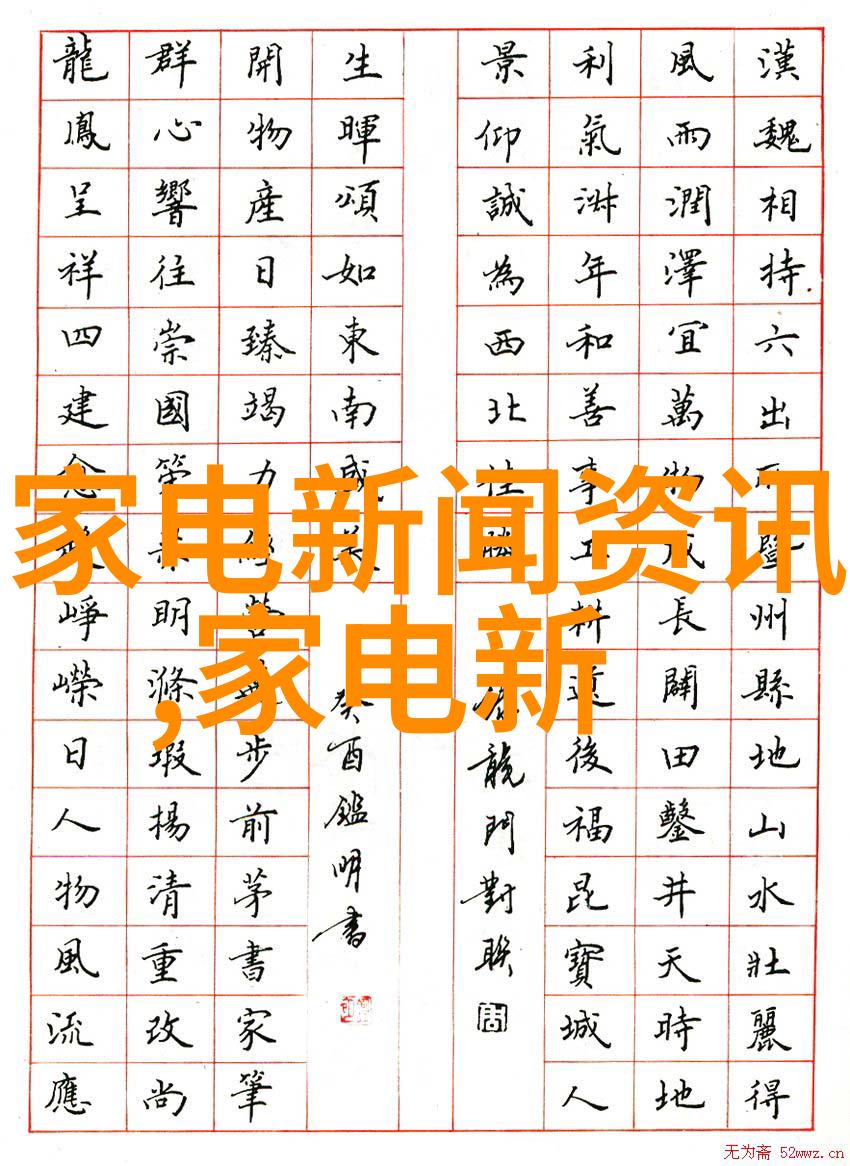 漢魏相持六出暨州縣地山水壯麗得
風雨潤澤宜萬物成長闢田鑿井天時地
利氣年和善事工耕後福昆寶城人
景仰誠為西北往勝
龍門對聯
生暉頌如東南盛美
癸酉鑑明書
開物產日臻竭力經營步前茅書家筆
群心響往崇國策明滌瑕揚清重改尚
龍鳳呈祥四建念崢嶸日人物風流應
家电新闻资讯
,家电新
无为斋 52wwz.cn